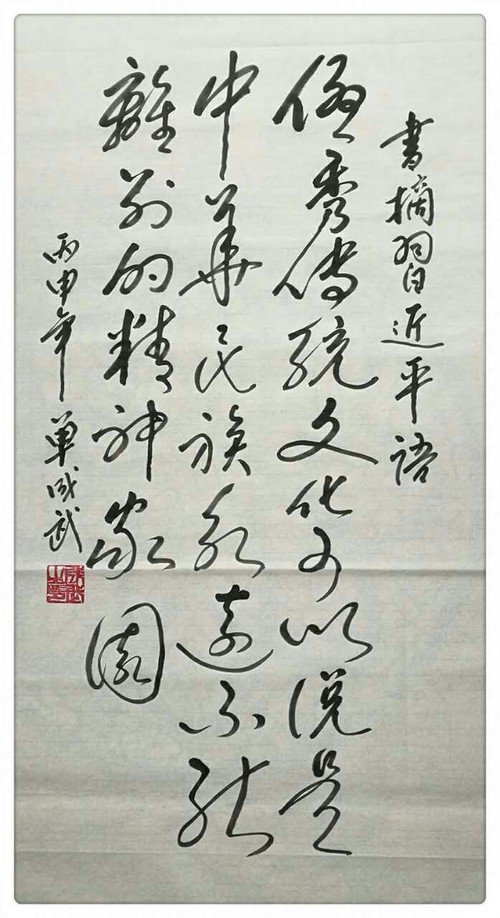 書摘習近平語
優秀傳統文化可以说是
中華民族永遠不能
離別的精神家園
丙申年 單成武